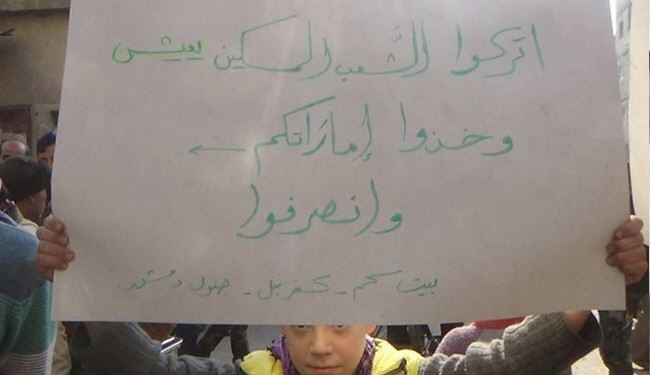 اتركوا الشَّعب المسكين يعيش
وخذوا إمارَاتكم ←
وانصرفوا
بيت سحم - كفربل - جنوب دمشق